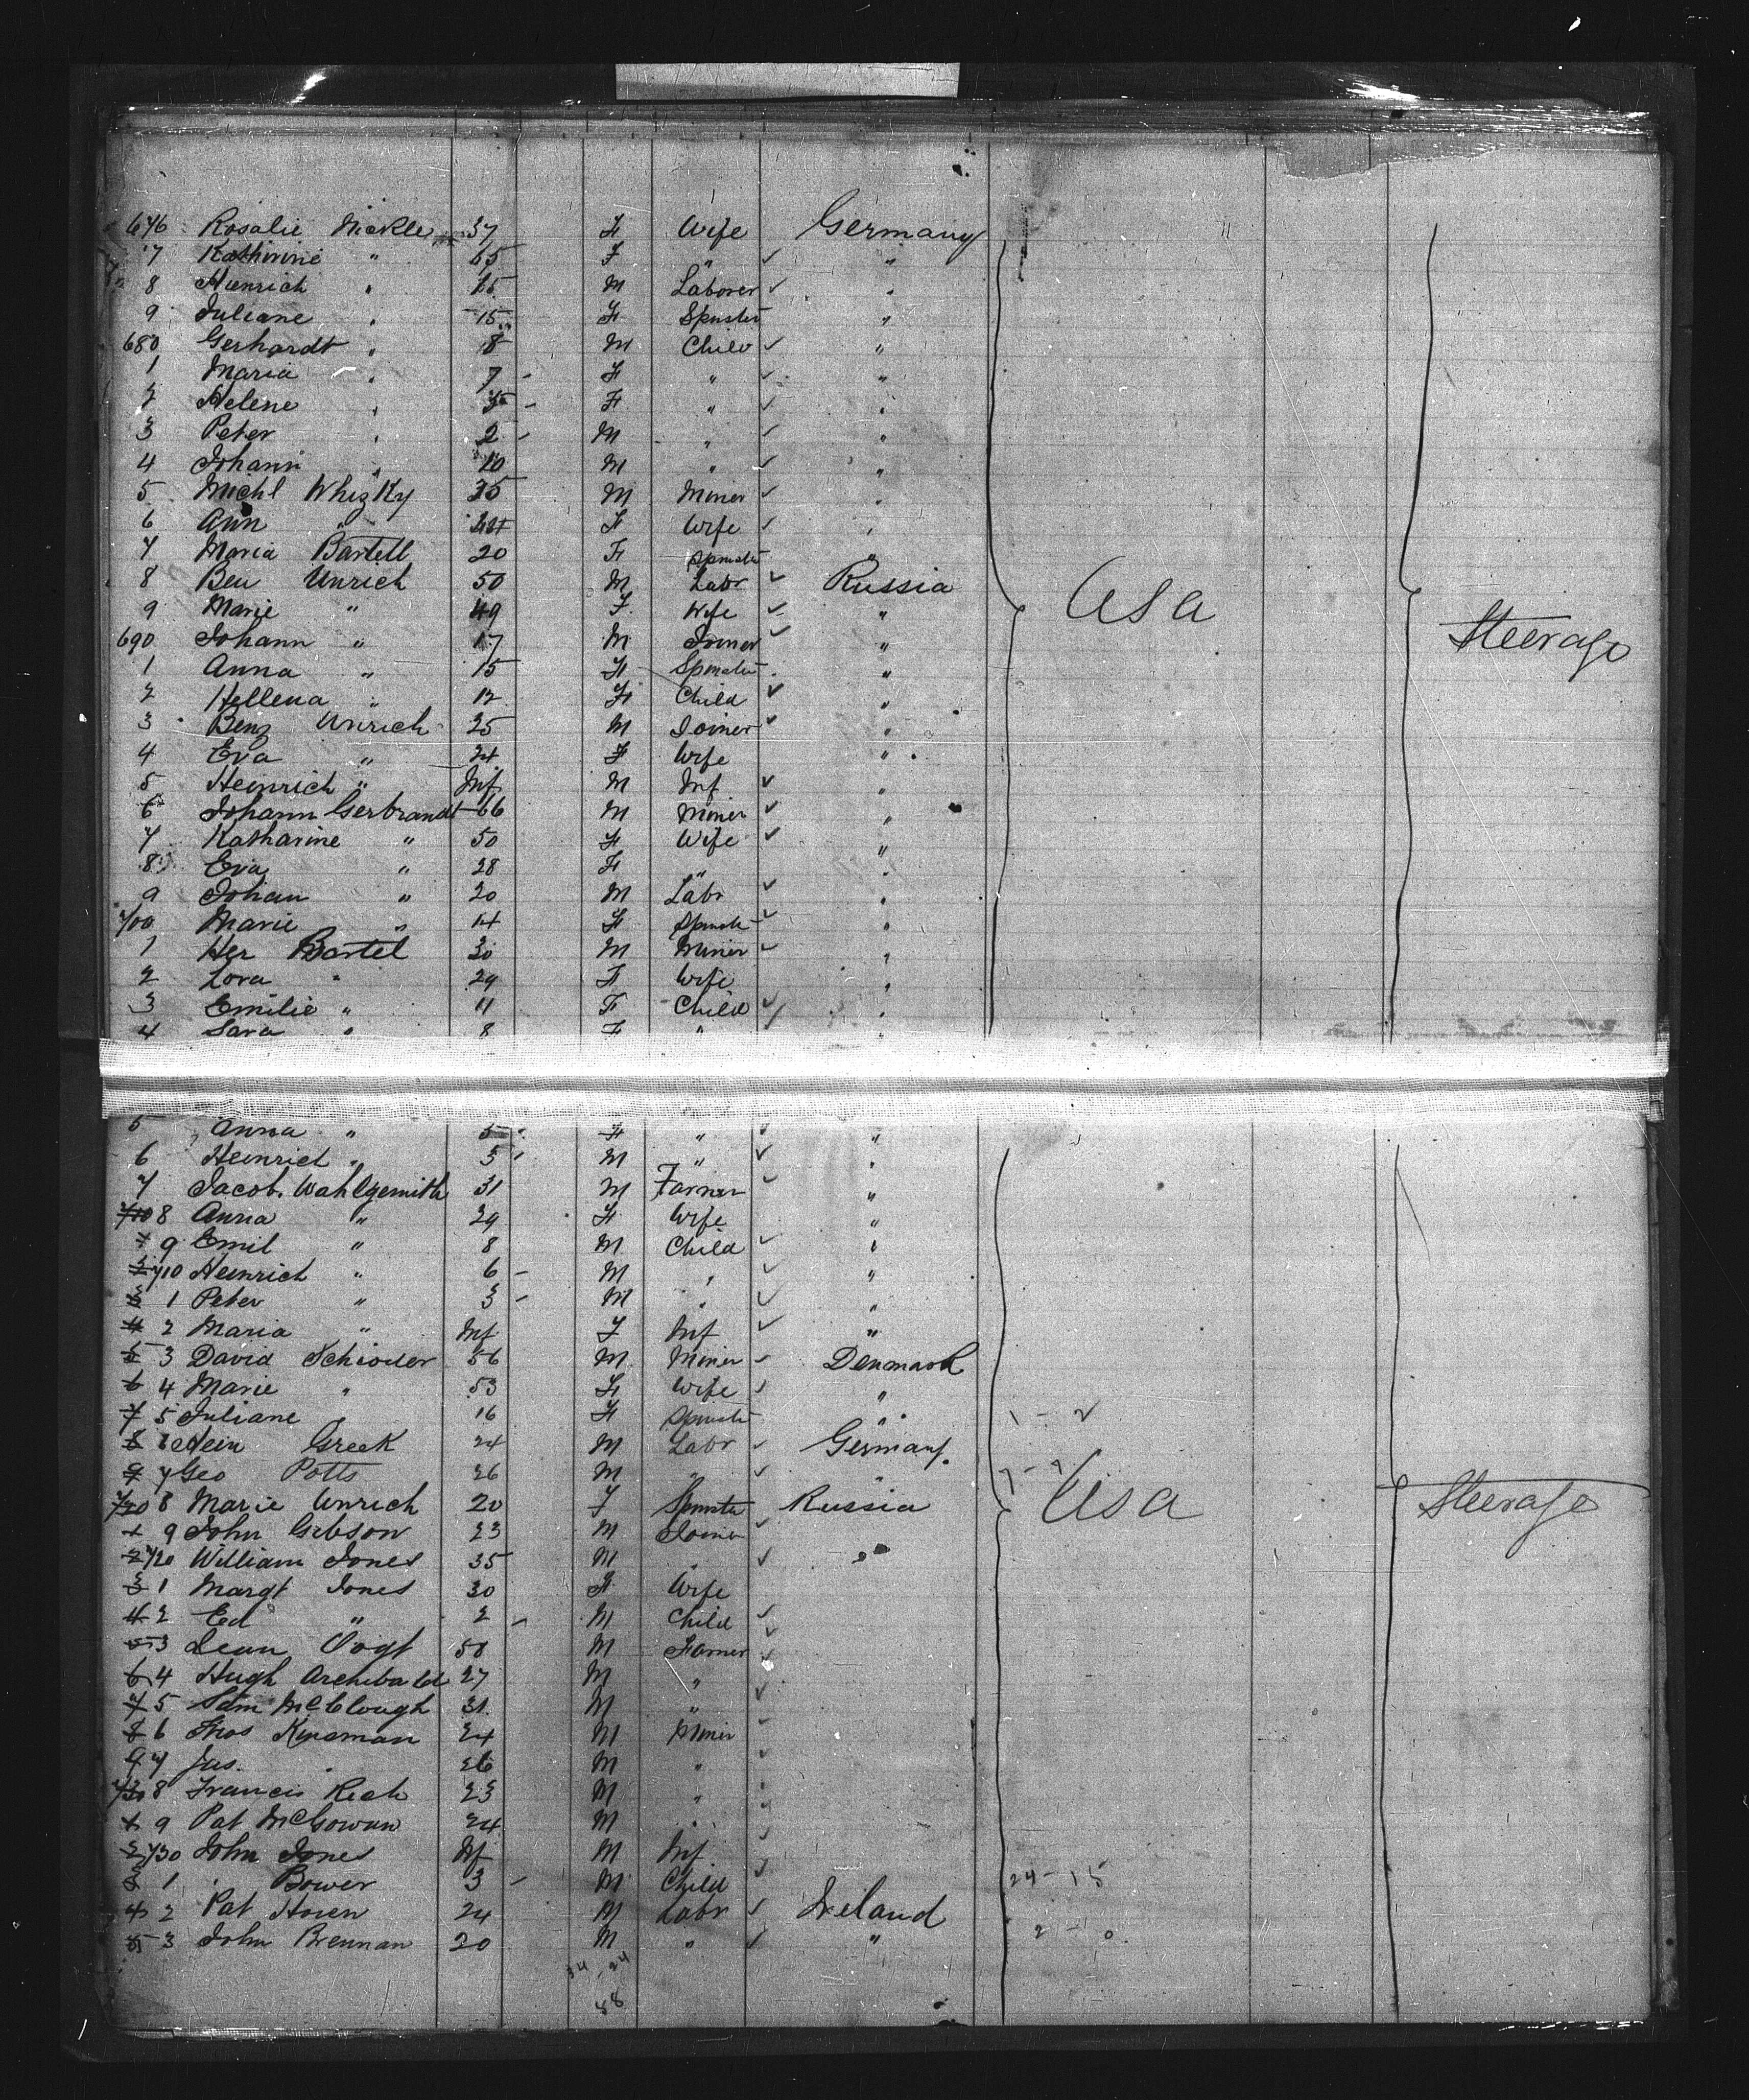 676 Rosalie Nickle 37 F Wife Germany
7 Kathirine " 65 F " "
8 Hienrich " M Laborer "
9 Juliane " 15 F Spinster "
680 Gerhardt " 8 M Child "
1 Maria " 7 F " "
2 Helene " F " "
3 Peter " 2 M " "
4 Johann " 10 M " "
5 Michl Whizky 35 M Miner "
6 Ann " F Wife "
7 Maria Bartell 20 F Spinster "
8 Ben Unrich 50 M Labr Russia
9 Marie " 49 F Wife "
690 Johann " 17 M Joiner " USA Steerage
1 Anna " 15 F Spinster "
2 Hellena " 12 F Child "
3 Benz Unrich 25 M Joiner "
4 Eva " 24 F Wife "
5 Heinrich " Inf M Inf "
6 Johann Gerbrandt 66 M Miner "
7 Katharine " 50 F Wife "
8 Eva " 28 F " "
9 Johan " 20 M Labr "
700 Marie " 14 F Spinstr "
1 Her Bartel 30 M Miner "
2 Lora " 29 F Wife "
3 Emilie " 11 F Child "
4 Sara " 8 F " "
5 Anna " 5 F " "
6 Heinrich " 3 M " "
7 Jacob Wahlgemith 31 M Farmer "
700 8 Anna " 29 F Wife "
1 9 Emil " 8 M Child "
2 710 Heinrich " 6 M " "
3 1 Peter " 3 M " "
4 2 Maria " Inf F Inf "
5 3 David Schroder 56 M Miner Denmark
6 4 Marie " 53 F Wife "
7 5 Juliane " 16 F Spinster " 1 - 2
8 6 Hein Greek 24 M Labr Germany
9 7 Geo Potts 26 M "
720 8 Marie Unrich 20 F Spinster Russia USA Steerage
1 9 John Gibson 23 M Joiner
2 720 William Jones 35 M " "
3 1 Margt Jones 30 F Wife
4 2 Ed " 2 M Child
5 3 Vogt 50 M Farmer
6 4 Hugh Archibald 27 M "
7 5 Sam McClough 31 M "
8 6 Thos Kinsman 24 M Miner
9 7 Jas. " 26 M "
730 8 Francis Rich 23 M "
1 9 Pat McGowan 24 M "
2 730 John Jones Inf M Inf
3 1 " Bower 3 M Child 24 - 15
4 2 Pat Horen 24 M Labr Ireland
5 3 John Brennan 20 M " " 2 - 0
34 24
58